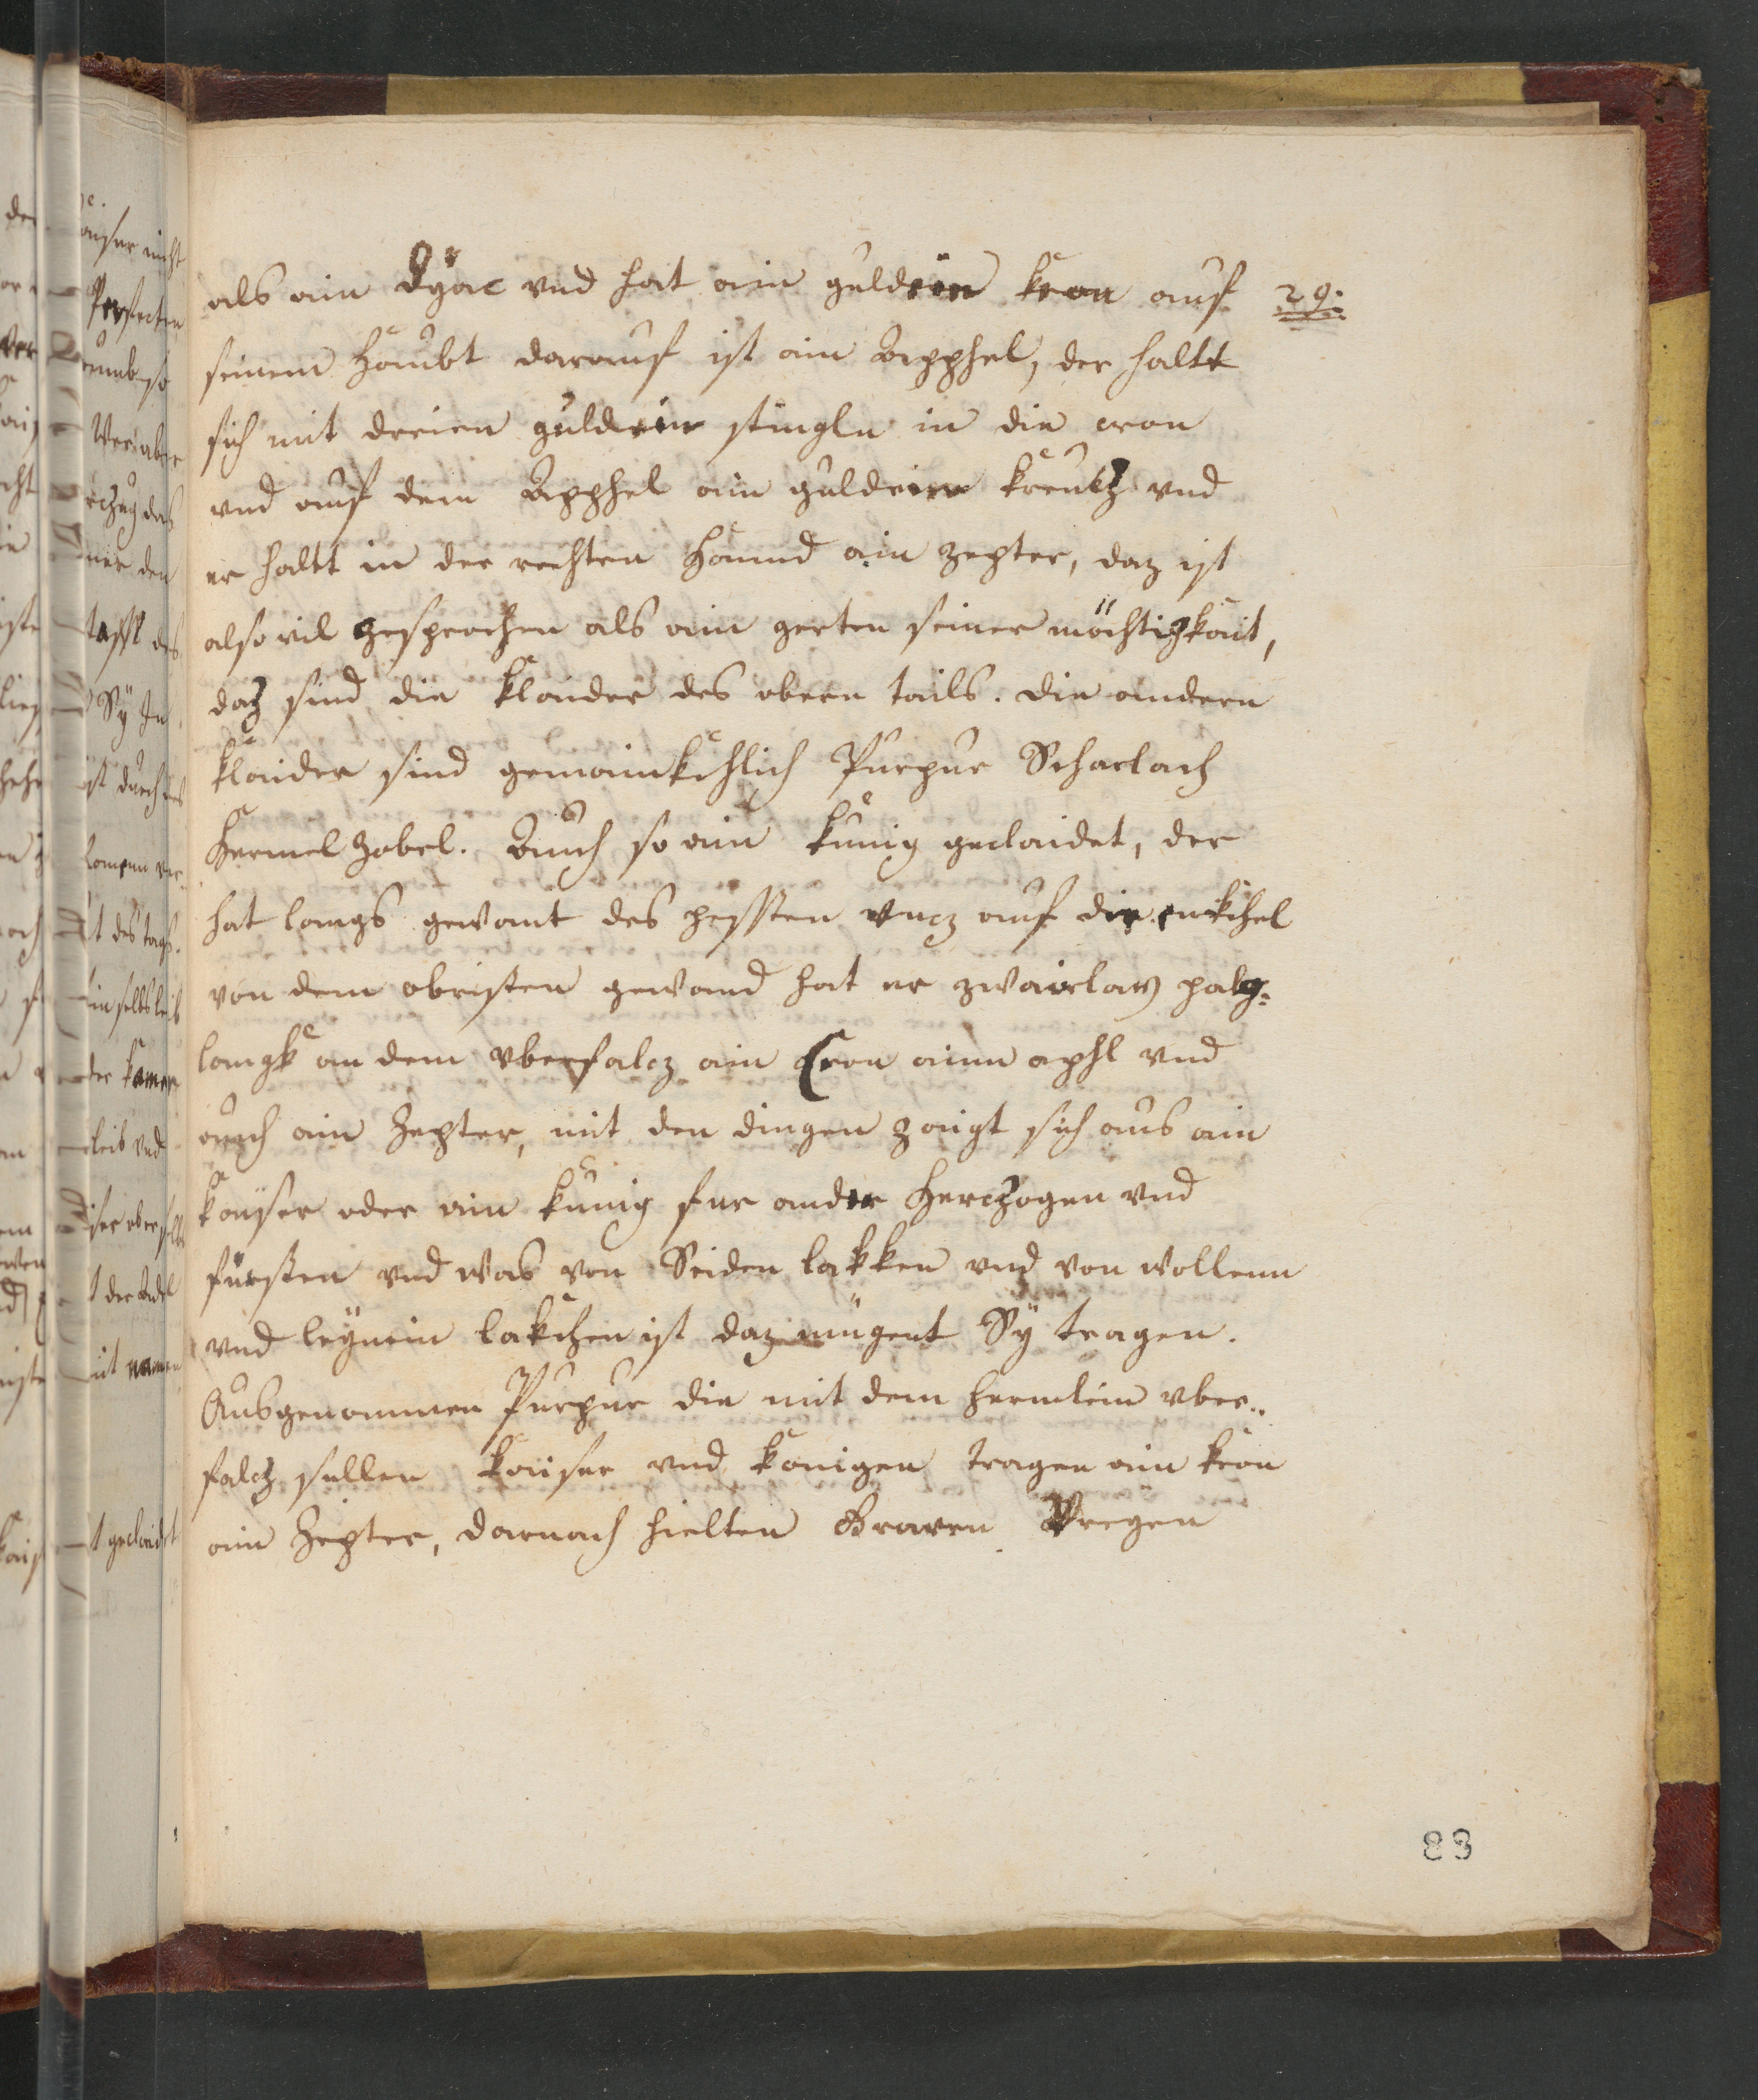 als ain Dyac vnd hat ain guldein kron auf 29.
seinem Haubt darauf ist ain Apphel, der haltt
sich mit dreien guldein stingln in die cron
vnd auf dem Apphel ain guldein kreutz vnd
er haltt in der rechten Hannd ain zepter, daz ist
also vil gesprochen als ain gerten seiner möchtigkait,
daz sind die klaider des obern tails. die andern
klaider sind gemainkchlich Purpur Scharlach
Hermel Zobel. Auch so ain kunig geclaidet, der
hat langs gewant des pessten vncz auf die enkchel
von dem obristen gewand hat er zwairlay palg-
langk an dem vberfalcz ain Cron ainn aphl vnd
auch ain Zepter, mit den dingen zaigt sich aus ain
kayser oder ain kunig fur ander Herczogen vnd
fürsten vnd was von Seiden lakken vnd von wollenn
vnd leÿnein lakchen ist daz mügent Sÿ tragen.
Ausgenommen Purpur die mit dem hermlein vber-
falcz sullen kaiser vnd konigen tragen ain kron
ain Zepter, darnach hielten Graven
83